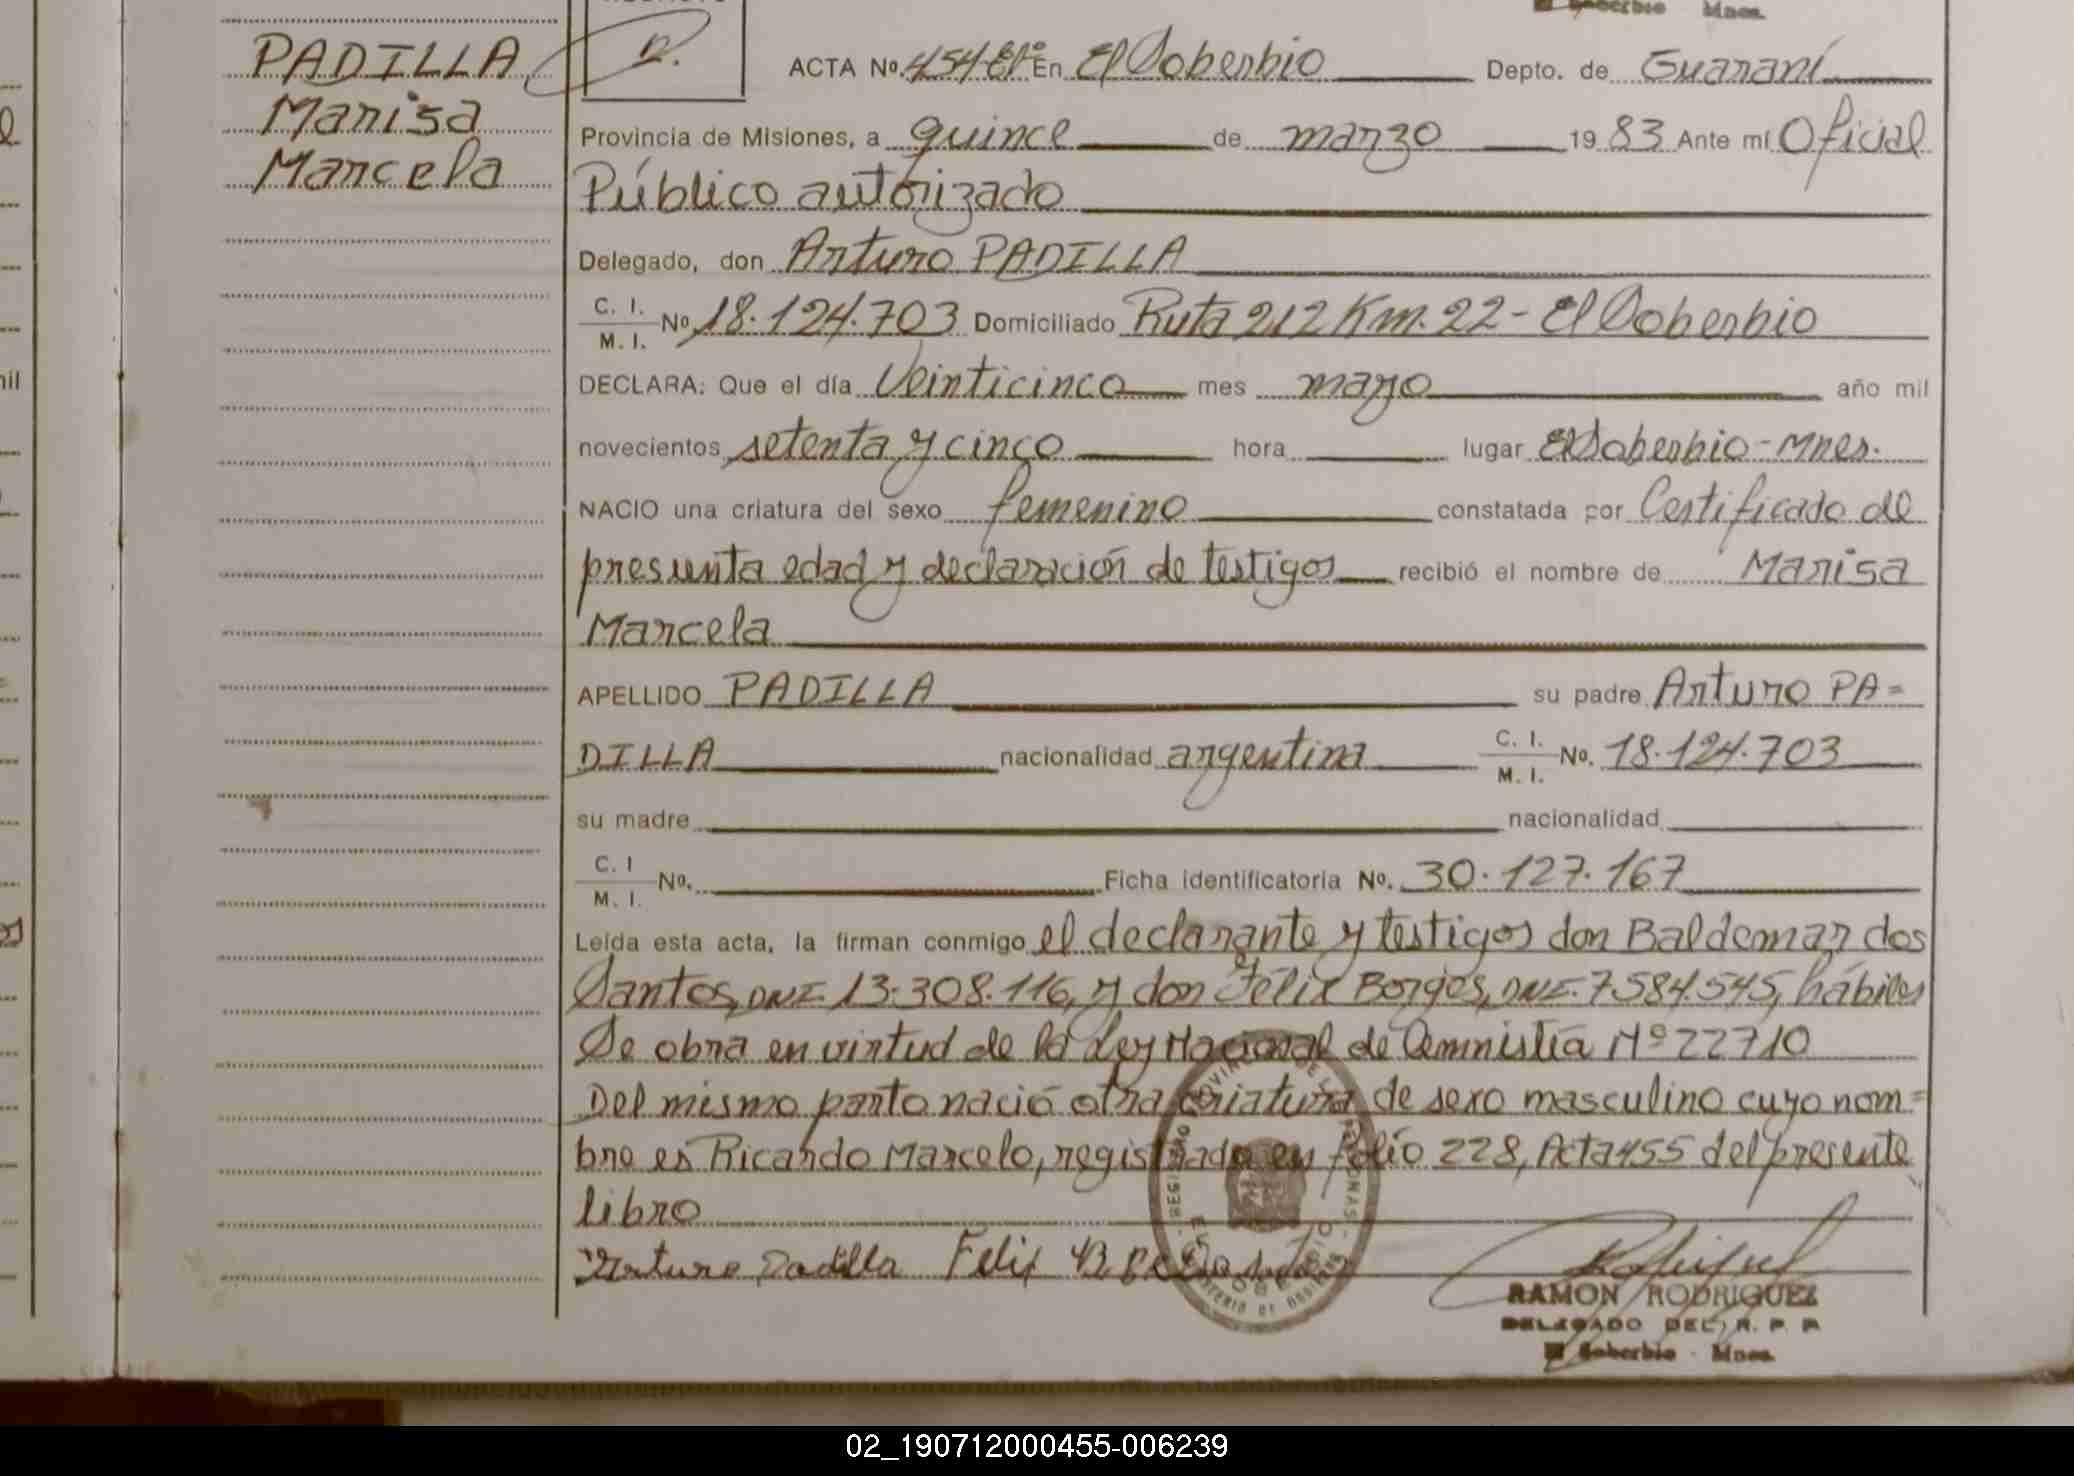 El Soberbio Mnes.
PADILLA
Marisa
Marcela
ACTA Nº 454 En El Soberbio Depto. de Guaraní
Provincia de Misiones, a quince de marzo 1983 Ante mí Oficial
Público autorizado
Delegado, don Arturo PADILLA
C. I. M. I. Nº 18.124.703 Domiciliado Ruta 212 Km. 22 - El Soberbio
DECLARA: Que el día Veinticinco mes mayo año mil
novecientos setenta y cinco hora lugar El Soberbio - Mnes.
NACIO una criatura del sexo femenino constatada por Certificado de
presunta edad y declaración de testigos recibió el nombre de Marisa
Marcela
APELLIDO PADILLA su padre Arturo PA=
DILLA nacionalidad argentina C. I. M. I. Nº. 18.124.703
su madre nacionalidad
C. I M. I. Nº. Ficha identificatoria Nº. 30.127.167
Leída esta acta, la firman conmigo el declarante y testigos don Baldemar dos
Santos, DNI. 13.308.116, y don Félix Borges, DNI. 7.584.545, hábiles
Se obra en virtud de la Ley Nacional de Amnistía Nº 22710
Del mismo parto nació otra criatura de sexo masculino cuyo nom=
bre es Ricardo Marcelo, registrado en folio 228, Acta 455 del presente
libro
Arturo Padilla Felix
RAMON RODRIGUEZ
DELEGADO DEL R. P. P.
El Soberbio - Mnes.
02_190712000455-006239